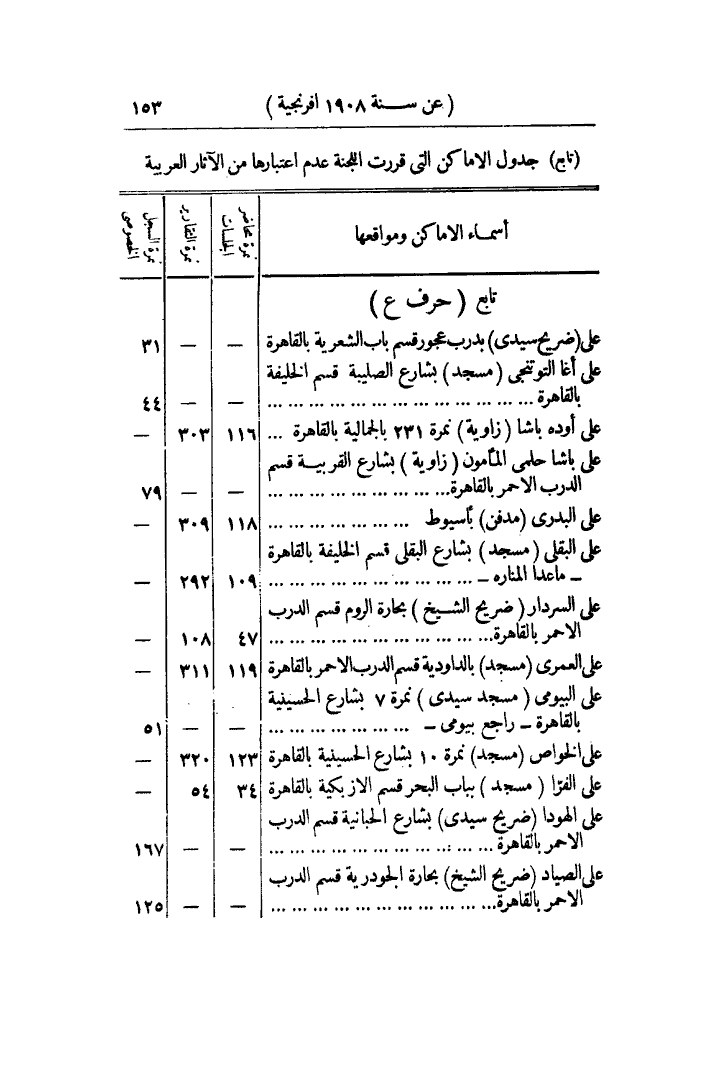 (عن ســنة ١٩٠٨ افرنجية) ١٥٣
(تابع) جدول الاماكن التى قررت اللجنة عدم اعتبارها من الآثار العربية
أسمـاء الاماكن ومواقعها نمرة محاضر الجلسات نمرة التقارير نمرة السجل الخصوصى
تابع (حرف ع)
على (ضريح سيدى) بدرب عجور قسم باب الشعرية بالقاهرة — — ٣١
على أغا التوتنجى (مسجد) بشارع الصليبة قسم الخليفة
بالقاهرة ... ... ... ... ... ... ... ... ... ... ... ... — — ٤٤
على أوده باشا (زاوية) نمرة ٢٣١ بالجمالية بالقاهرة ... ١١٦ ٣٠٣ —
على باشا حلمى المأمون (زاوية) بشارع القربيـة قسم
الدرب الاحمر بالقاهرة... ... ... ... ... ... ... ... — — ٧٩
على البدرى (مدفن) بأسيوط ... ... ... ... ... ... ... ١١٨ ٣٠٩ —
على البقلى (مسجد) بشارع البقلى قسم الخليفة بالقاهرة
ـ ماعدا المناره ـ ... ... ... ... ... ... ... ... ... ١٠٩ ٢٩٢ —
على السردار (ضريح الشـيخ) بحارة الروم قسم الدرب
الاحمر بالقاهرة... ... ... ... ... ... ... ... ... ... ٤٧ ١٠٨ —
على العمرى (مسجد) بالداودية قسم الدرب الاحمر بالقاهرة ١١٩ ٣١١ —
على البيومى (مسجد سيدى) نمرة ٧ بشارع الحسينية
بالقاهرة ـ راجع بيومى ـ ... ... ... ... ... ... ... — — ٥١
على الخواص (مسجد) نمرة ١٠ بشارع الحسينية بالقاهرة ١٢٣ ٣٢٠ —
على الفرّا (مسجد) بباب البحر قسم الازبكية بالقاهرة ٣٤ ٥٤ —
على الهودا (ضريح سيدى) بشارع الحبانية قسم الدرب
الاحمر بالقاهرة ... ... ... ... ... ... ... ... ... ... — — ١٦٧
على الصياد (ضريح الشيخ) بحارة الجودرية قسم الدرب
الاحمر بالقاهرة... ... ... ... ... ... ... ... ... ... — — ١٢٥